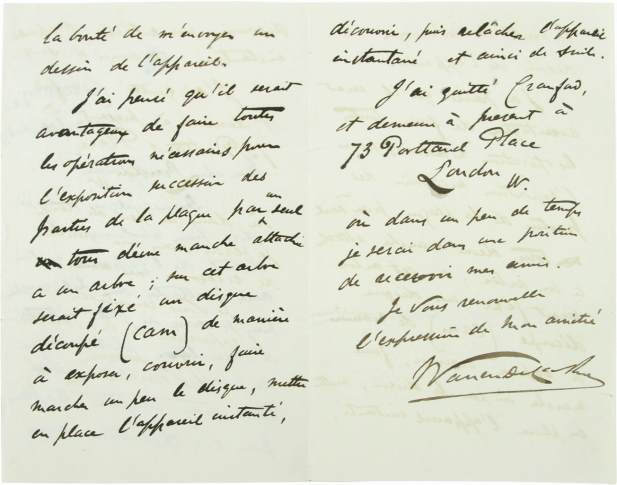 la bonté de m'envoyer un
dessin de l'appareil.
J'ai pensé qu'il serait
avantageux de faire toutes
les opérations nécessaires pour
l'exposition successive des
parties de la plaque par un seul
tour d'une manche attachée
a un arbre ; sur cet arbre
serait fixé un disque
découpé (cam) de manière
à exposer, couvrir, faire
marcher un peu le disque, mettre
en place l'appareil instanté,
découvrir, puis relâcher l'appareil
instantané et ainsi de suite.
J'ai quitté Cranford,
et demeure à présent à
73 Portland Place
London W.
où dans un peu de temps
je serai dans une position
de recevoir mes amis.
Je vous renouvelle
l'expression de mon amitié
Warren De la Rue